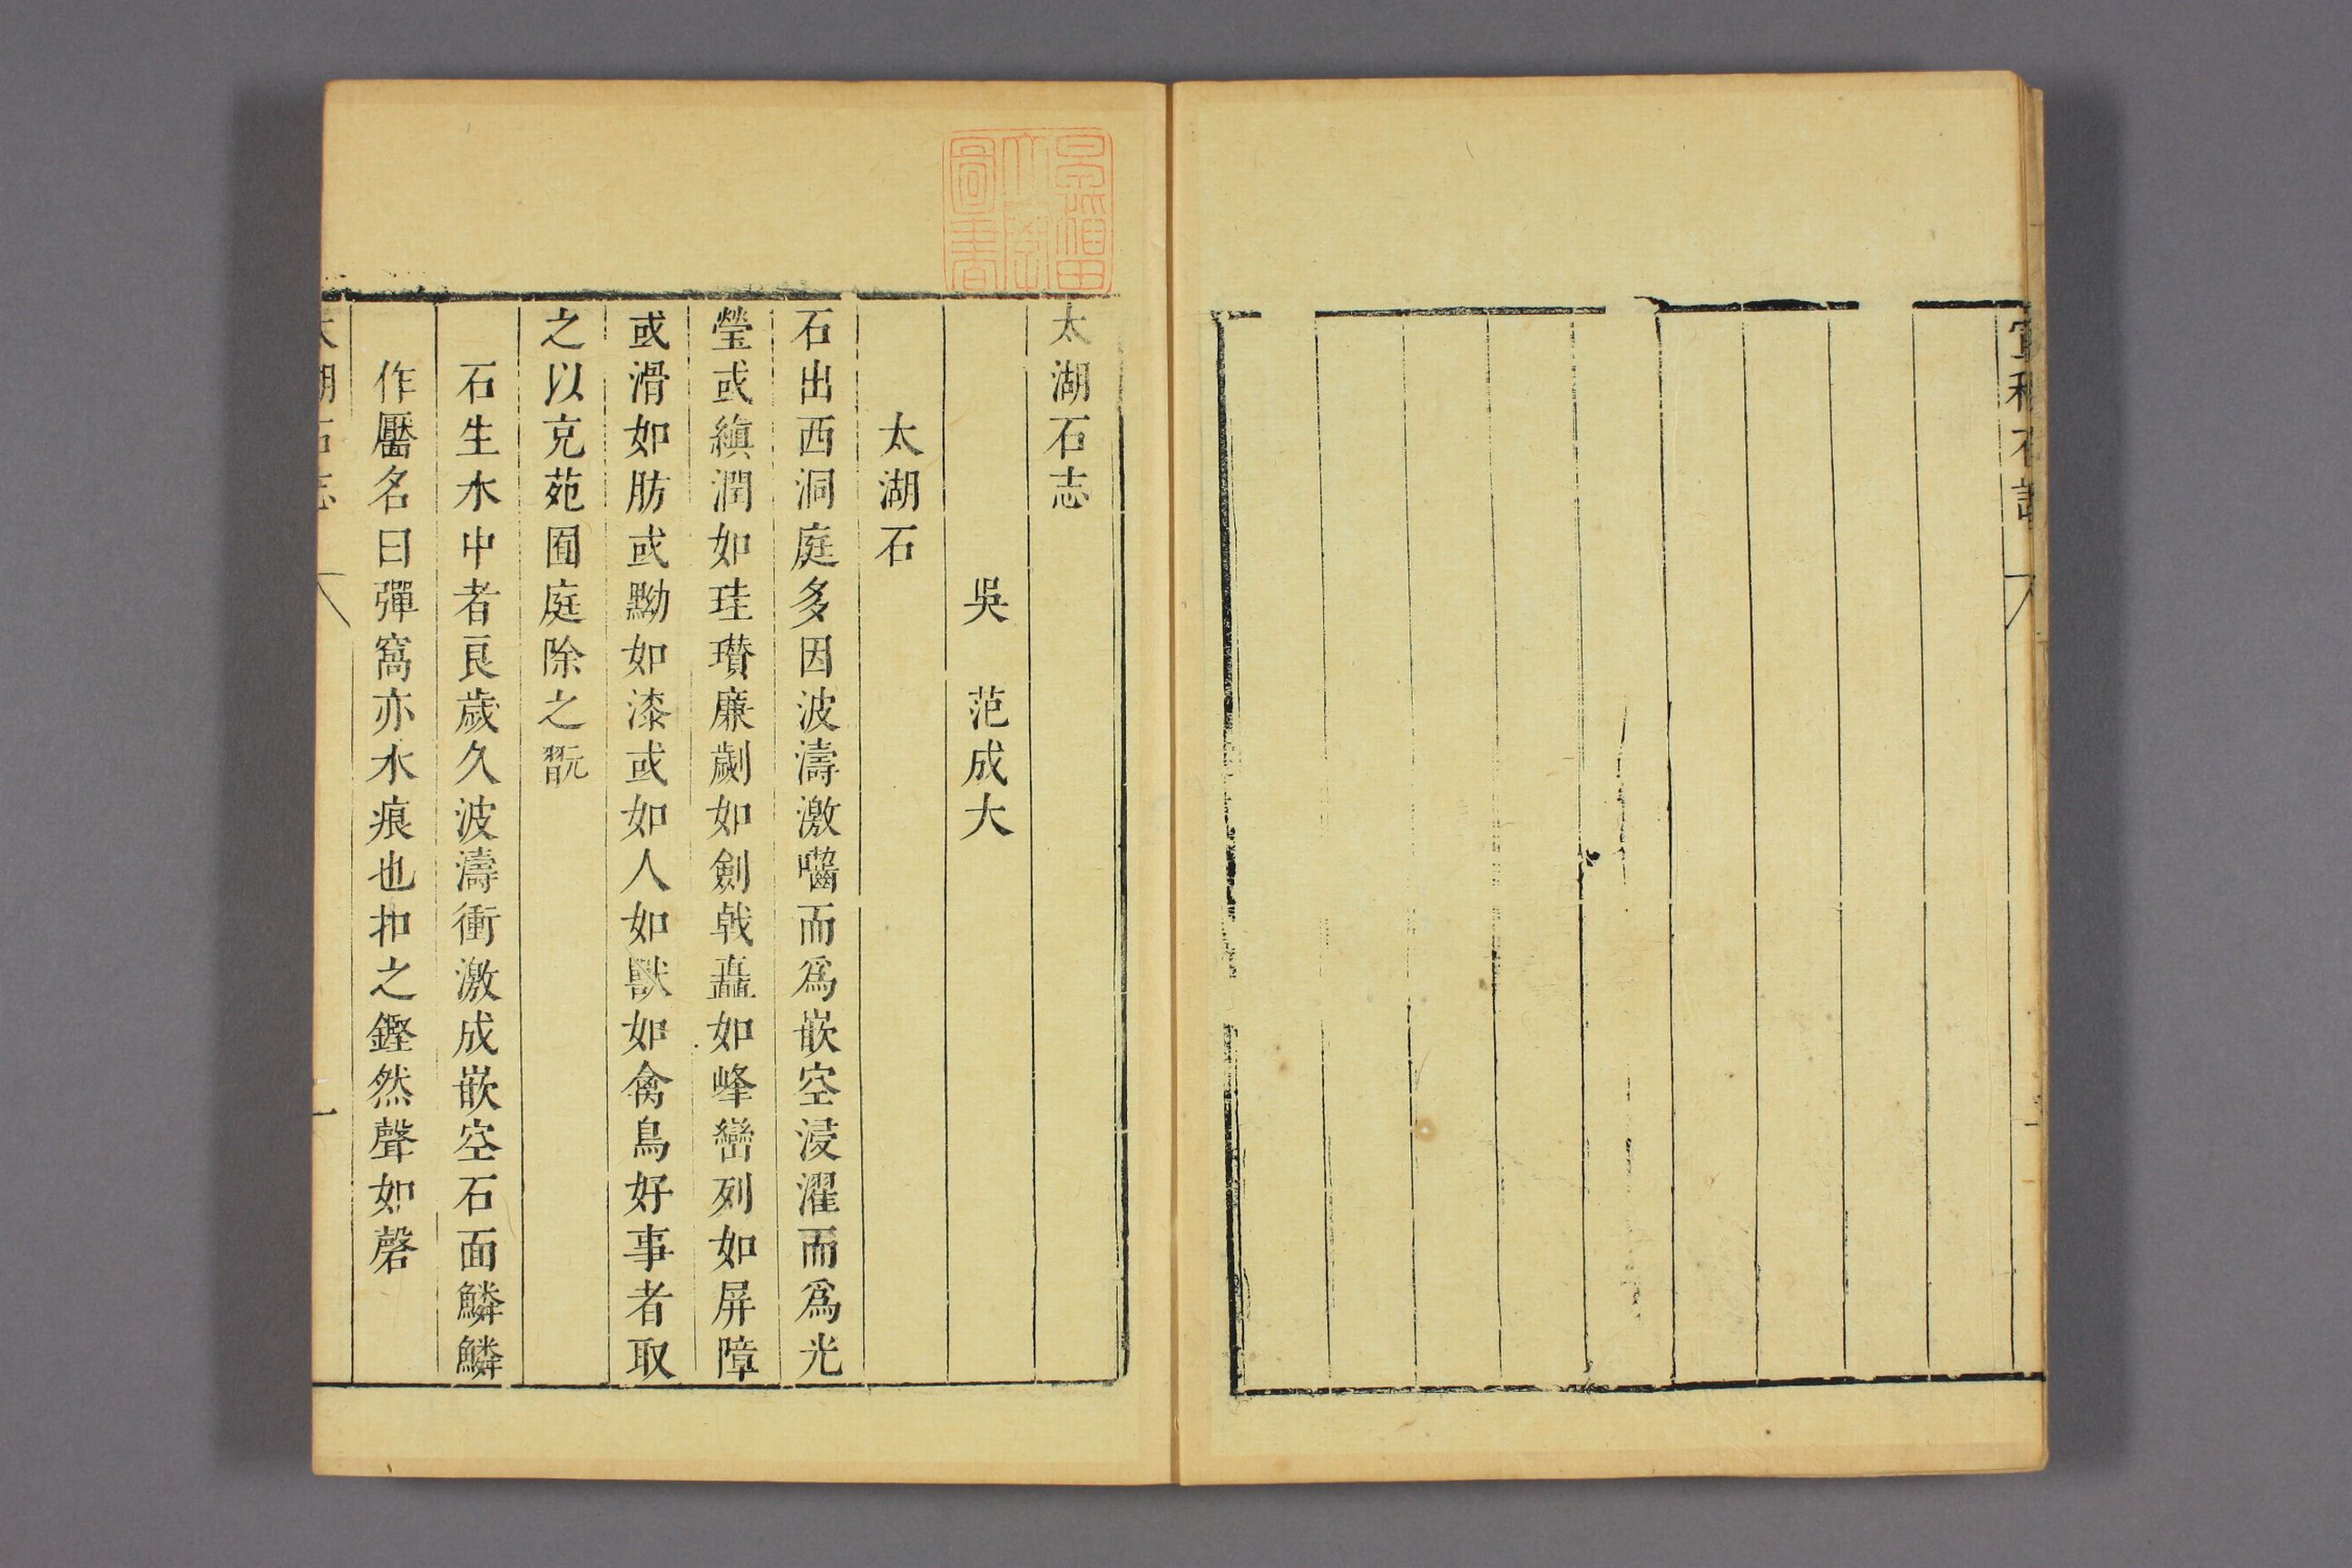 宣和石譜
太湖石志
吳　范成大
太湖石
石出西洞庭多因波濤激嚙而爲嵌空浸濯而爲光
瑩或縝潤如珪瓚廉劌如劍戟矗如峰巒列如屏障
或滑如肪或黝如漆或如人如獸如禽鳥好事者取
之以充苑囿庭除之翫
石生水中者良歲久波濤衝激成嵌空石面鱗鱗
作靨名曰彈窩亦水痕也扣之鏗然聲如磬
太湖石志　一